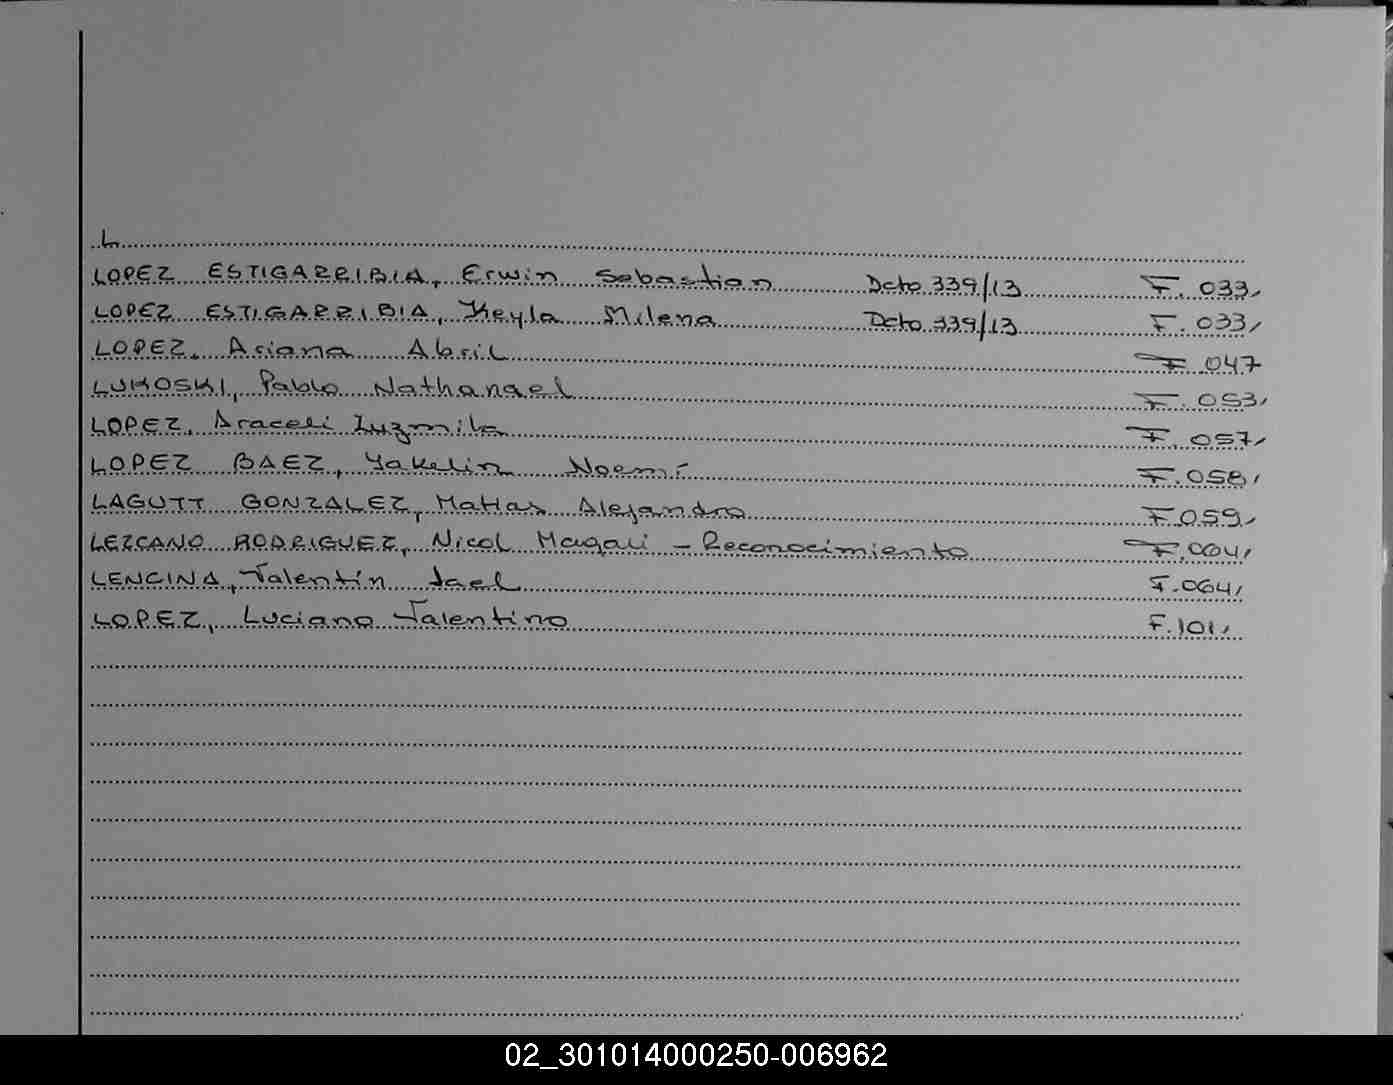 L
LOPEZ ESTIGARRIBIA, Erwin Sebastian Dcto 339/13 F. 033,
LOPEZ ESTIGARRIBIA, Keyla Milena Dcto 339/13 F. 033,
LOPEZ, Ariana Abril F. 047
LUKOSKI, Pablo Nathanael F. 053,
LOPEZ, Araceli Luzmila F. 057,
LOPEZ BAEZ, Yakelin Noemí F. 058,
LAGUTT GONZALEZ, Matias Alejandro F. 059,
LEZCANO RODRIGUEZ, Nicol Magali - Reconocimiento F. 004,
LENCINA, Valentín Jael F. 064,
LOPEZ, Luciano Valentino F. 101,
02_301014000250-006962